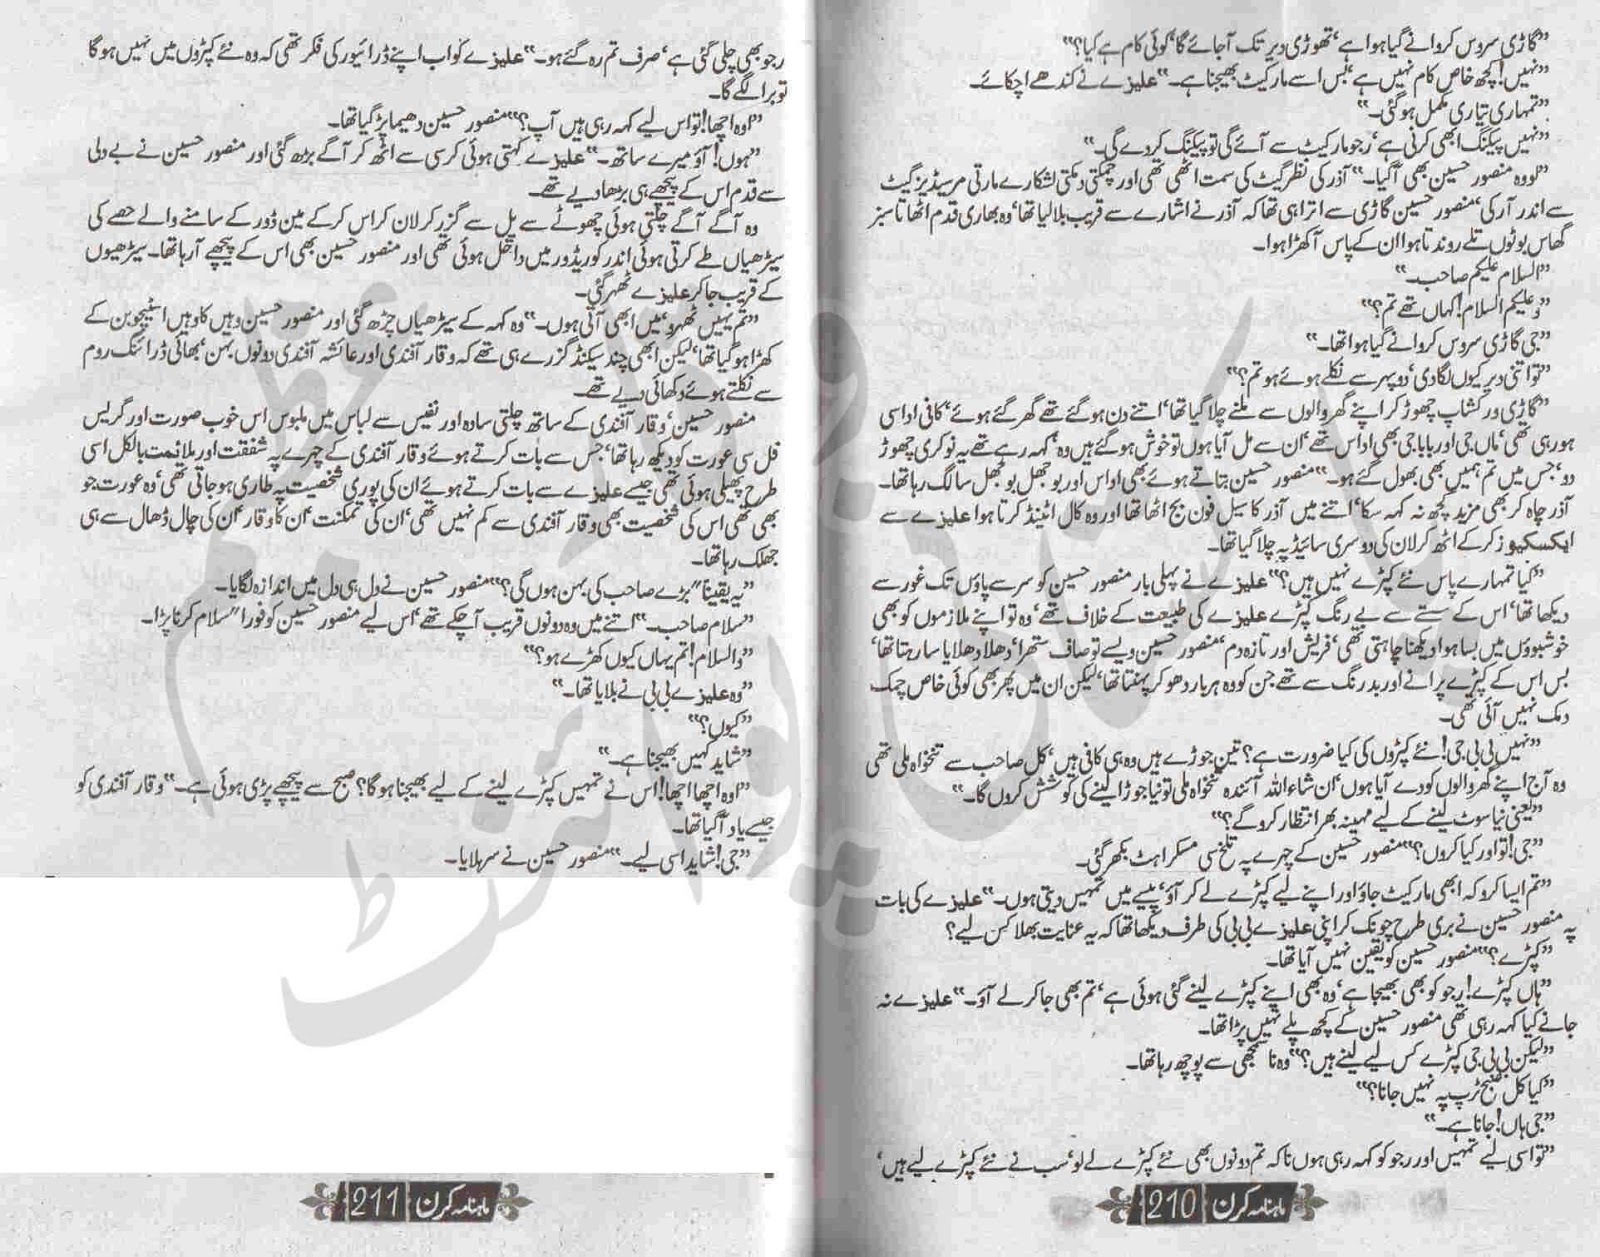 ”گاڑی سروس کروانے گیا ہوا ہے‘ تھوڑی دیر تک آجائے گا‘ کوئی کام ہے کیا؟“
”نہیں! کچھ خاص کام نہیں ہے‘ بس اسے مارکیٹ بھیجنا ہے۔“ علیزے نے کندھے اچکائے۔
”تمہاری تیاری مکمل ہوگئی۔“
”نہیں پیکنگ ابھی کرنی ہے‘ رجو مارکیٹ سے آئے گی تو پیکنگ کردے گی۔“
”لو وہ منصور حسین بھی آگیا۔“ آذر کی نظر گیٹ کی سمت اٹھی تھی اور چمکتی دمکتی لشکارے مارتی مرسیڈیز گیٹ
سے اندر آرکی‘ منصور حسین گاڑی سے اترا ہی تھا کہ آذر نے اشارے سے قریب بلالیا تھا‘ وہ بھاری قدم اٹھاتا سبز
گھاس بوٹوں تلے روندتا ہوا ان کے پاس آکھڑا ہوا۔
”السلام علیکم صاحب۔“
”وعلیکم السلام! کہاں تھے تم؟“
”جی گاڑی سروس کروانے گیا ہوا تھا۔“
”تو اتنی دیر کیوں لگادی‘ دوپہر سے نکلے ہوئے ہو تم؟“
”گاڑی ورکشاپ چھوڑ کر اپنے گھر والوں سے ملنے چلا گیا تھا‘ اتنے دن ہوگئے تھے گھر گئے ہوئے‘ کافی اداسی
ہورہی تھی‘ ماں جی اور بابا جی بھی اداس تھے‘ ان سے مل آیا ہوں تو خوش ہوگئے ہیں وہ‘ کہہ رہے تھے یہ نوکری چھوڑ
دو‘ جس میں تم ہمیں بھی بھول گئے ہو۔“ منصور حسین بتاتے ہوئے بھی اداس اور بوجھل بوجھل سا لگ رہا تھا۔
آذر چاہ کر بھی مزید کچھ نہ کہہ سکا‘ اتنے میں آذر کا سیل فون بج اٹھا تھا اور وہ کال اٹینڈ کرتا ہوا علیزے سے
ایکسکیوز کرکے اٹھ کر لان کی دوسری سائیڈ پہ چلا گیا تھا۔
”کیا تمہارے پاس نئے کپڑے نہیں ہیں؟“ علیزے نے پہلی بار منصور حسین کو سر سے پاؤں تک غور سے
دیکھا تھا‘ اس کے سستے سے بے رنگ کپڑے علیزے کی طبیعت کے خلاف تھے‘ وہ تو اپنے ملازموں کو بھی
خوشبوؤں میں بسا ہوا دیکھنا چاہتی تھی‘ فریش اور تازہ دم‘ منصور حسین ویسے تو صاف ستھرا‘ دھلا دھلایا سا رہتا تھا‘
بس اس کے کپڑے پرانے اور بدرنگ سے تھے جن کو وہ ہر بار دھو کر پہنتا تھا‘ لیکن ان میں پھر بھی کوئی خاص چمک
دمک نہیں آئی تھی۔
”نہیں بی بی جی! نئے کپڑوں کی کیا ضرورت ہے؟ تین جوڑے ہیں وہ ہی کافی ہیں‘ کل صاحب سے تنخواہ ملی تھی
وہ آج اپنے گھر والوں کو دے آیا ہوں‘ ان شاء اللہ آئندہ تنخواہ ملی تو نیا جوڑا لینے کی کوشش کروں گا۔“
”یعنی نیا سوٹ لینے کے لیے مہینہ بھر انتظار کرو گے؟“
”جی! تو اور کیا کروں؟“ منصور حسین کے چہرے پہ تلخ سی مسکراہٹ بکھر گئی۔
”تم ایسا کرو کہ ابھی مارکیٹ جاؤ اور اپنے لیے کپڑے لے کر آؤ‘ پیسے میں تمہیں دیتی ہوں۔“ علیزے کی بات
پہ منصور حسین نے بری طرح چونک کر اپنی علیزے بی بی کی طرف دیکھا تھا کہ یہ عنایت بھلا کس لیے؟
”کپڑے؟“ منصور حسین کو یقین نہیں آیا تھا۔
”ہاں کپڑے! رجو کو بھی بھیجا ہے‘ وہ بھی اپنے کپڑے لینے گئی ہوئی ہے‘ تم بھی جاکر لے آؤ۔“ علیزے نہ
جانے کیا کہہ رہی تھی منصور حسین کے کچھ پلے نہیں پڑا تھا۔
”لیکن بی بی جی کپڑے کس لیے لینے ہیں؟“ وہ ناسمجھی سے پوچھ رہا تھا۔
”کیا کل صبح ٹرپ پہ نہیں جانا؟“
”جی ہاں! جانا ہے۔“
”تو اسی لیے تمہیں اور رجو کو کہہ رہی ہوں تاکہ تم دونوں بھی نئے کپڑے لے لو‘ سب نے نئے کپڑے لیے ہیں‘
ماہنامہ کرن 210
رجو بھی چلی گئی ہے‘ صرف تم رہ گئے ہو۔“ علیزے کو اب اپنے ڈرائیور کی فکر تھی کہ وہ نئے کپڑوں میں نہیں ہوگا
تو برا لگے گا۔
”اوہ اچھا! تو اس لیے کہہ رہی ہیں آپ؟“ منصور حسین دھیما پڑ گیا تھا۔
”ہوں! آؤ میرے ساتھ۔“ علیزے کہتی ہوئی کرسی سے اٹھ کر آگے بڑھ گئی اور منصور حسین نے بے دلی
سے قدم اس کے پیچھے ہی بڑھا دیے تھے۔
وہ آگے آگے چلتی ہوئی چھوٹے سے پل سے گزر کر لان کراس کرکے مین ڈور کے سامنے والے حصے کی
سیڑھیاں طے کرتی ہوئی اندر کوریڈور میں داخل ہوئی تھی اور منصور حسین بھی اس کے پیچھے آرہا تھا۔ سیڑھیوں
کے قریب جاکر علیزے ٹھہر گئی۔
”تم یہیں ٹھہرو‘ میں ابھی آتی ہوں۔“ وہ کہہ کے سیڑھیاں چڑھ گئی اور منصور حسین وہیں کا وہیں اسٹیچو بن کے
کھڑا ہوگیا تھا‘ لیکن ابھی چند سیکنڈ گزرے ہی تھے کہ وقار آفندی اور عائشہ آفندی دونوں بہن‘ بھائی ڈرائنگ روم
سے نکلتے ہوئے دکھائی دیے تھے۔
منصور حسین‘ وقار آفندی کے ساتھ چلتی سادہ اور نفیس سے لباس میں ملبوس اس خوب صورت اور گریس
فل سی عورت کو دیکھ رہا تھا‘ جس سے بات کرتے ہوئے وقار آفندی کے چہرے پہ شفقت اور ملائمت بالکل اسی
طرح پھیلی ہوئی تھی جیسے علیزے سے بات کرتے ہوئے ان کی پوری شخصیت پہ طاری ہوجاتی تھی‘ وہ عورت جو
بھی تھی اس کی شخصیت بھی وقار آفندی سے کم نہیں تھی‘ ان کی تمکنت‘ ان کا وقار‘ ان کی چال ڈھال سے ہی
جھلک رہا تھا۔
”یہ یقیناً“ بڑے صاحب کی بہن ہوں گی؟“ منصور حسین نے دل ہی دل میں اندازہ لگایا۔
”سلام صاحب۔“ اتنے میں وہ دونوں قریب آچکے تھے‘ اس لیے منصور حسین کو فوراً“ سلام کرنا پڑا۔
”والسلام! تم یہاں کیوں کھڑے ہو؟“
”وہ علیزے بی بی نے بلایا تھا۔“
”کیوں؟“
”شاید کہیں بھیجنا ہے۔“
”اوہ اچھا اچھا! اس نے تمہیں کپڑے لینے کے لیے بھیجنا ہوگا؟ صبح سے پیچھے پڑی ہوئی ہے۔“ وقار آفندی کو
جیسے یاد آگیا تھا۔
”جی! شاید اسی لیے۔“ منصور حسین نے سر ہلایا۔
ماہنامہ کرن 211